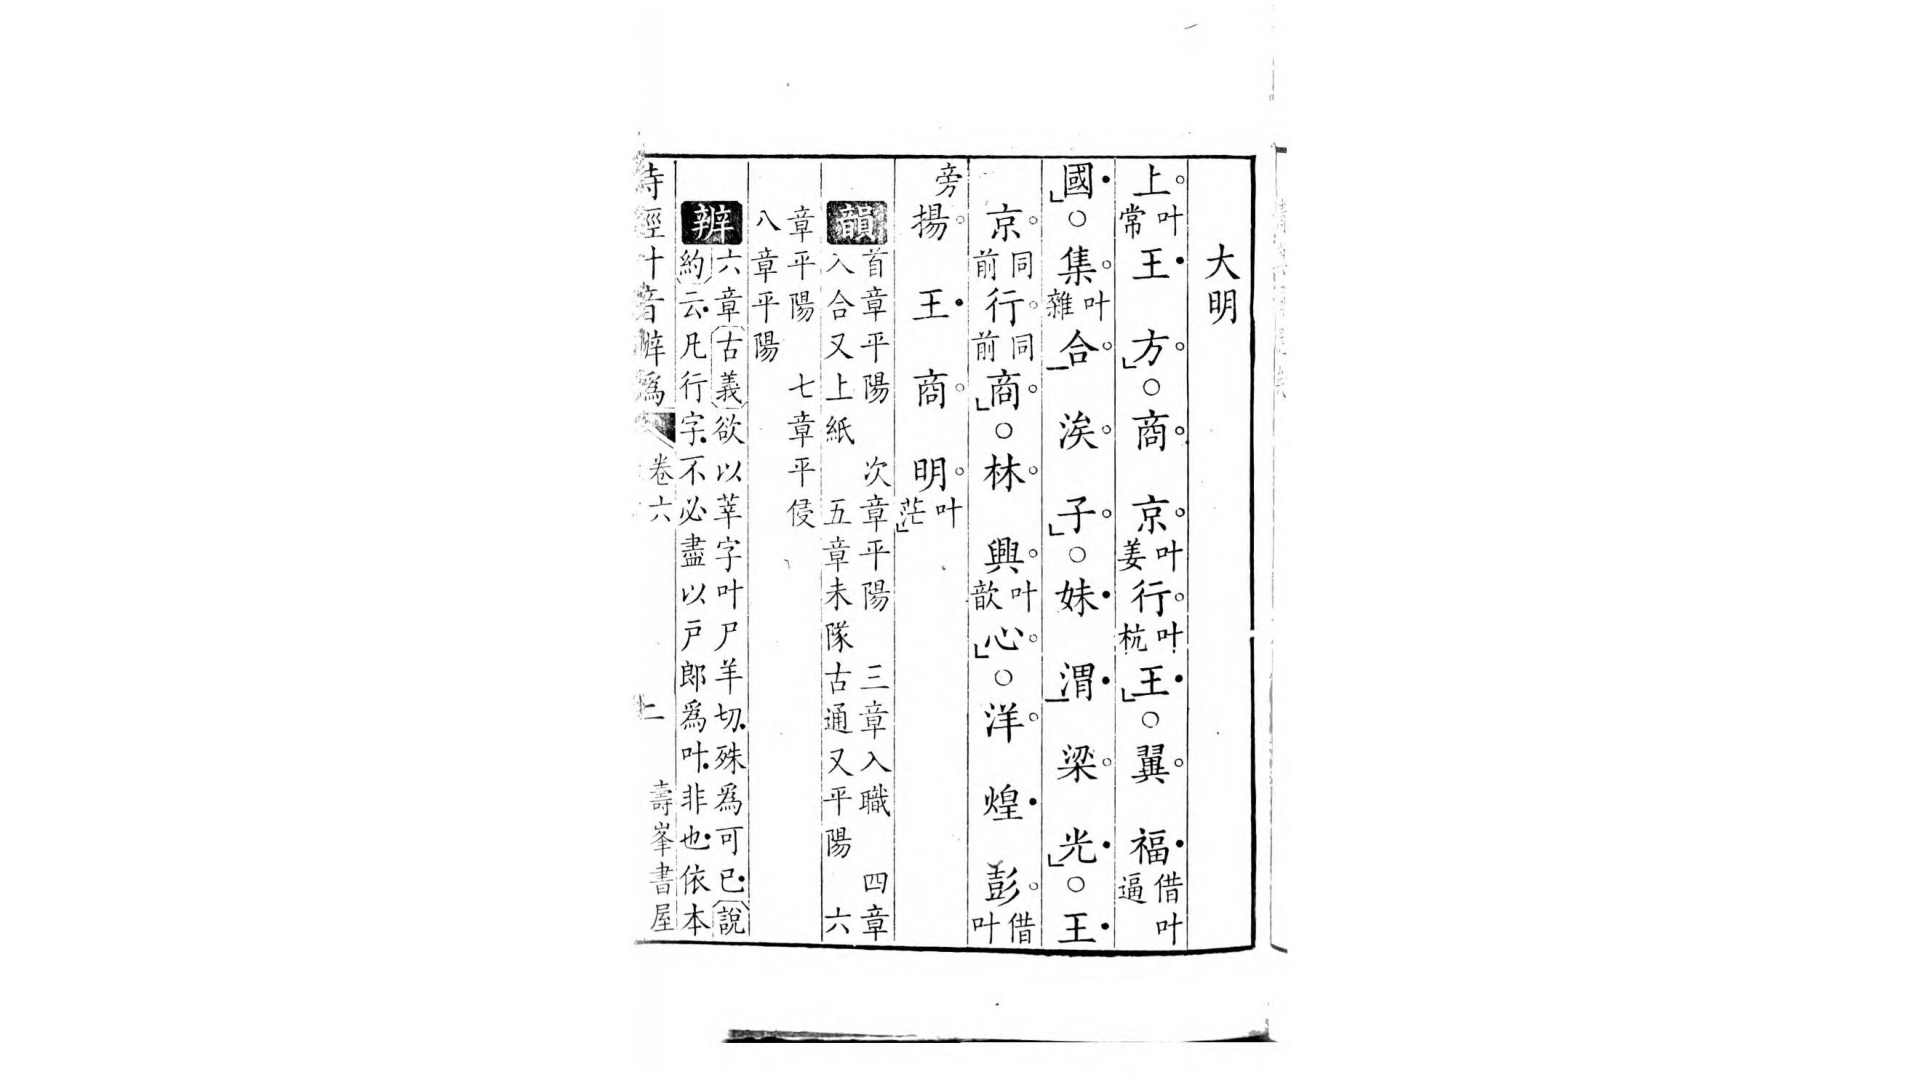 大明
上叶常王方○商京叶姜行叶杭王○翼福借叶逼
國○集叶雜合涘子○妹渭梁光○王
京同前行同前商○林興叶歆心○洋煌彭借叶
旁揚王商明叶茫
韻首章平陽　次章平陽　三章入職　四章
入合又上紙　五章未隊古通又平陽　六
章平陽　七章平侵
八章平陽
辨六章古義欲以莘字叶尸羊切殊爲可已說
約云凡行字不必盡以戸郎爲叶非也依本
詩經叶音辨譌　卷六　二　壽峯書屋